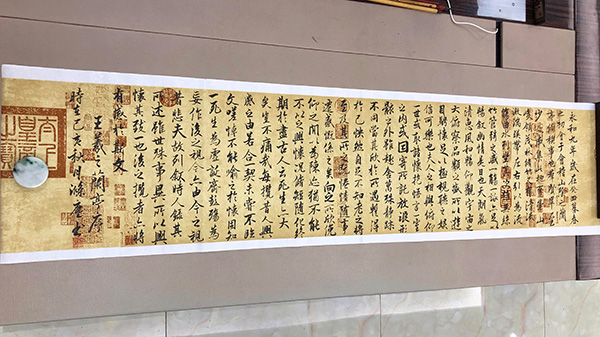 永和九年歲在癸丑暮春
之初會于會稽山陰之蘭
亭脩禊事也群賢畢至
少長咸集此地有崇山峻
領茂林脩竹又有清流激
湍暎帶左右引以為流觴
曲水列坐其次雖無絲竹管
弦之盛一觴一詠亦足以
暢敘幽情是日也天朗氣
清惠風和暢仰觀宇宙之
大俯察品類之盛所以遊
目騁懷足以極視聽之娛
信可樂也夫人之相與俯仰
一世或取諸懷抱悟言一室
之內或因寄所託放浪形
骸之外雖趣舍萬殊靜躁
不同當其欣於所遇蹔得
於己快然自足不知老之將
至及其所之既惓情隨事
遷感慨係之矣向之所欣俛
仰之間以為陳迹猶不能
不以之興懷況脩短隨化終
期於盡古人云死生亦大
矣豈不痛哉每攬昔人興
感之由若合一契未嘗不臨
文嗟悼不能喻之於懷固知
一死生為虛誕齊彭殤為
妄作後之視今亦由今之視
昔悲夫故列敘時人錄其
所述雖世殊事異所以興
懷其致一也後之攬者亦將
有感於斯文
王羲之蘭亭序
時在己亥秋月書